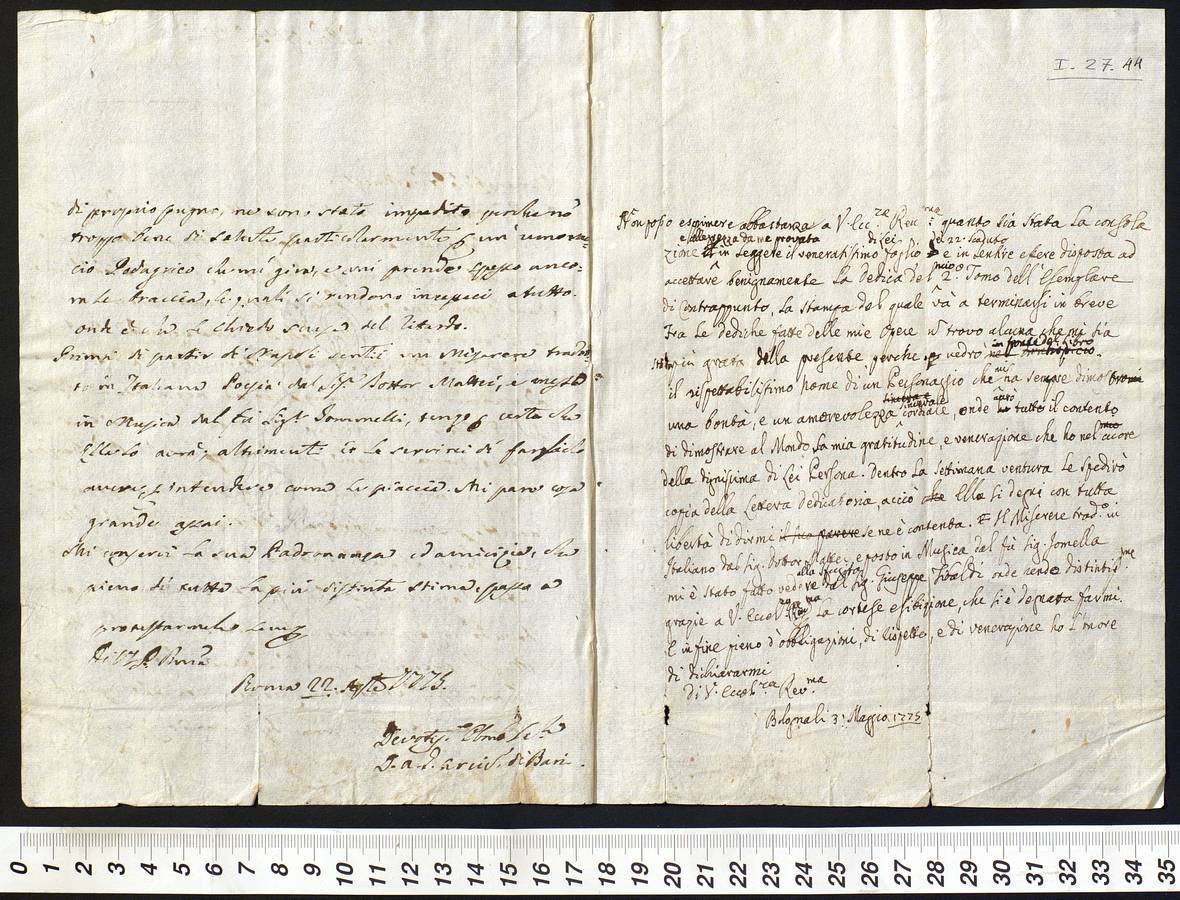 di proprio pugno, ne sono stato impedito perche nō
troppo bene di salute, particolarmente un umor
cio Podagrico che mi gira, e mi prende spesso anco=
ra le braccia, le quali si rendono incapaci a tutto.
onde è che Le chiedo scusa del ritardo.
Prima di partir di Napoli sentii un Miserere tradot=
to in Italiana Poesia dal Sigʳ Dottor Mattei, e messo
in Musica dal fù Sigʳ Jommelli, tengo certo che
Ella lo avrà, altrimenti Io La servirei di farglielo
avere, intendere come Le piaccia. Mi pare cosa
grande assai.
Mi conservi La sua Padronanza ed amicizia, che
pieno di tutta La più distinta stima passo a
protestarmele
Di V. S. Revmā
Roma 22. Apłe 1775.
Devotsº Obmo
D. a. d. arciv. di Bari.
I. 27. 44
Non posso esprimere abbastanza a V. Eccᶻᵃ Revᵐᵃ: quanto sia stata La consola
e allegrezza da me provata di lei del 22. scaduto
zione in Leggere il veneratissimo foglio e in sentire essere disposta ad
mio
accettare benignamente La Dedica del 2º. Tomo dell'Esemplare
di Contrappunto, La stampa del quale và a terminarsi in breve
Fra Le dediche fatte delle mie Opere nō trovo alcuna che mi sia
in fronte del Libro
stata più grata della presente perche vedrò nel frontispicio
il rispettabilissimo nome di un Personaggio che mi ha sempre dimostrato
sincera e
una bontà, e un amorevolezza cordiale, onde avrò tutto il contento
di dimostrare al Mondo La mia gratitudine, e venerazione che ho nel mio cuore
della dignissima di Lei Persona. Dentro La settimana ventura Le spedirò
copia della Lettera Dedicatoria, acciò che Ella si degni con tutta
libertà di dirmi il suo parere se ne è contenta. Il Miserere trad.º in
Italiano dal Sig. Dottor Mattei, e posto in Musica dal fù Sig. Jomella
alla sfuggita
mi è stato fatto vedere dal Sig. Giuseppe Tibaldi onde rendo distintisᵐᵉ
grazie a V. Eccelᶻᵃ Revᵐᵃ La cortese esibizione, che si è degnata farmi.
E in fine pieno d'obbligazioni, di rispetto, e di venerazione ho l'onore
di dichiararmi
Di V. Eccelᶻᵃ Rev.ᵐᵃ
Bologna li 3. Maggio. 1775.
0 1 2 3 4 5 6 7 8 9 10 11 12 13 14 15 16 17 18 19 20 21 22 23 24 25 26 27 28 29 30 31 32 33 34 35